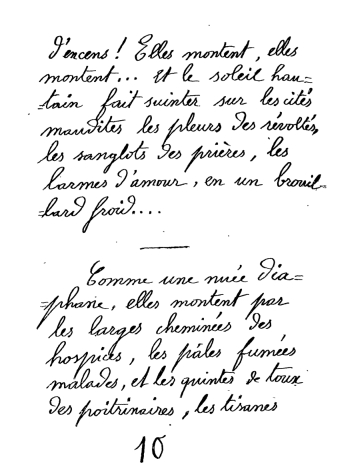 d'encens ! Elles montent, elles
montent... Et le soleil hau=
=tain fait suinter sur les cités
maudites les pleurs des révoltés,
les sanglots des prières, les
larmes d'amour, en un brouil=
=lard froid....
Comme une nuée dia=
=phane, elles montent par
les larges cheminées des
hospices, les pâles fumées
malades, et les quintes de toux
des poitrinaires, les tisanes
10